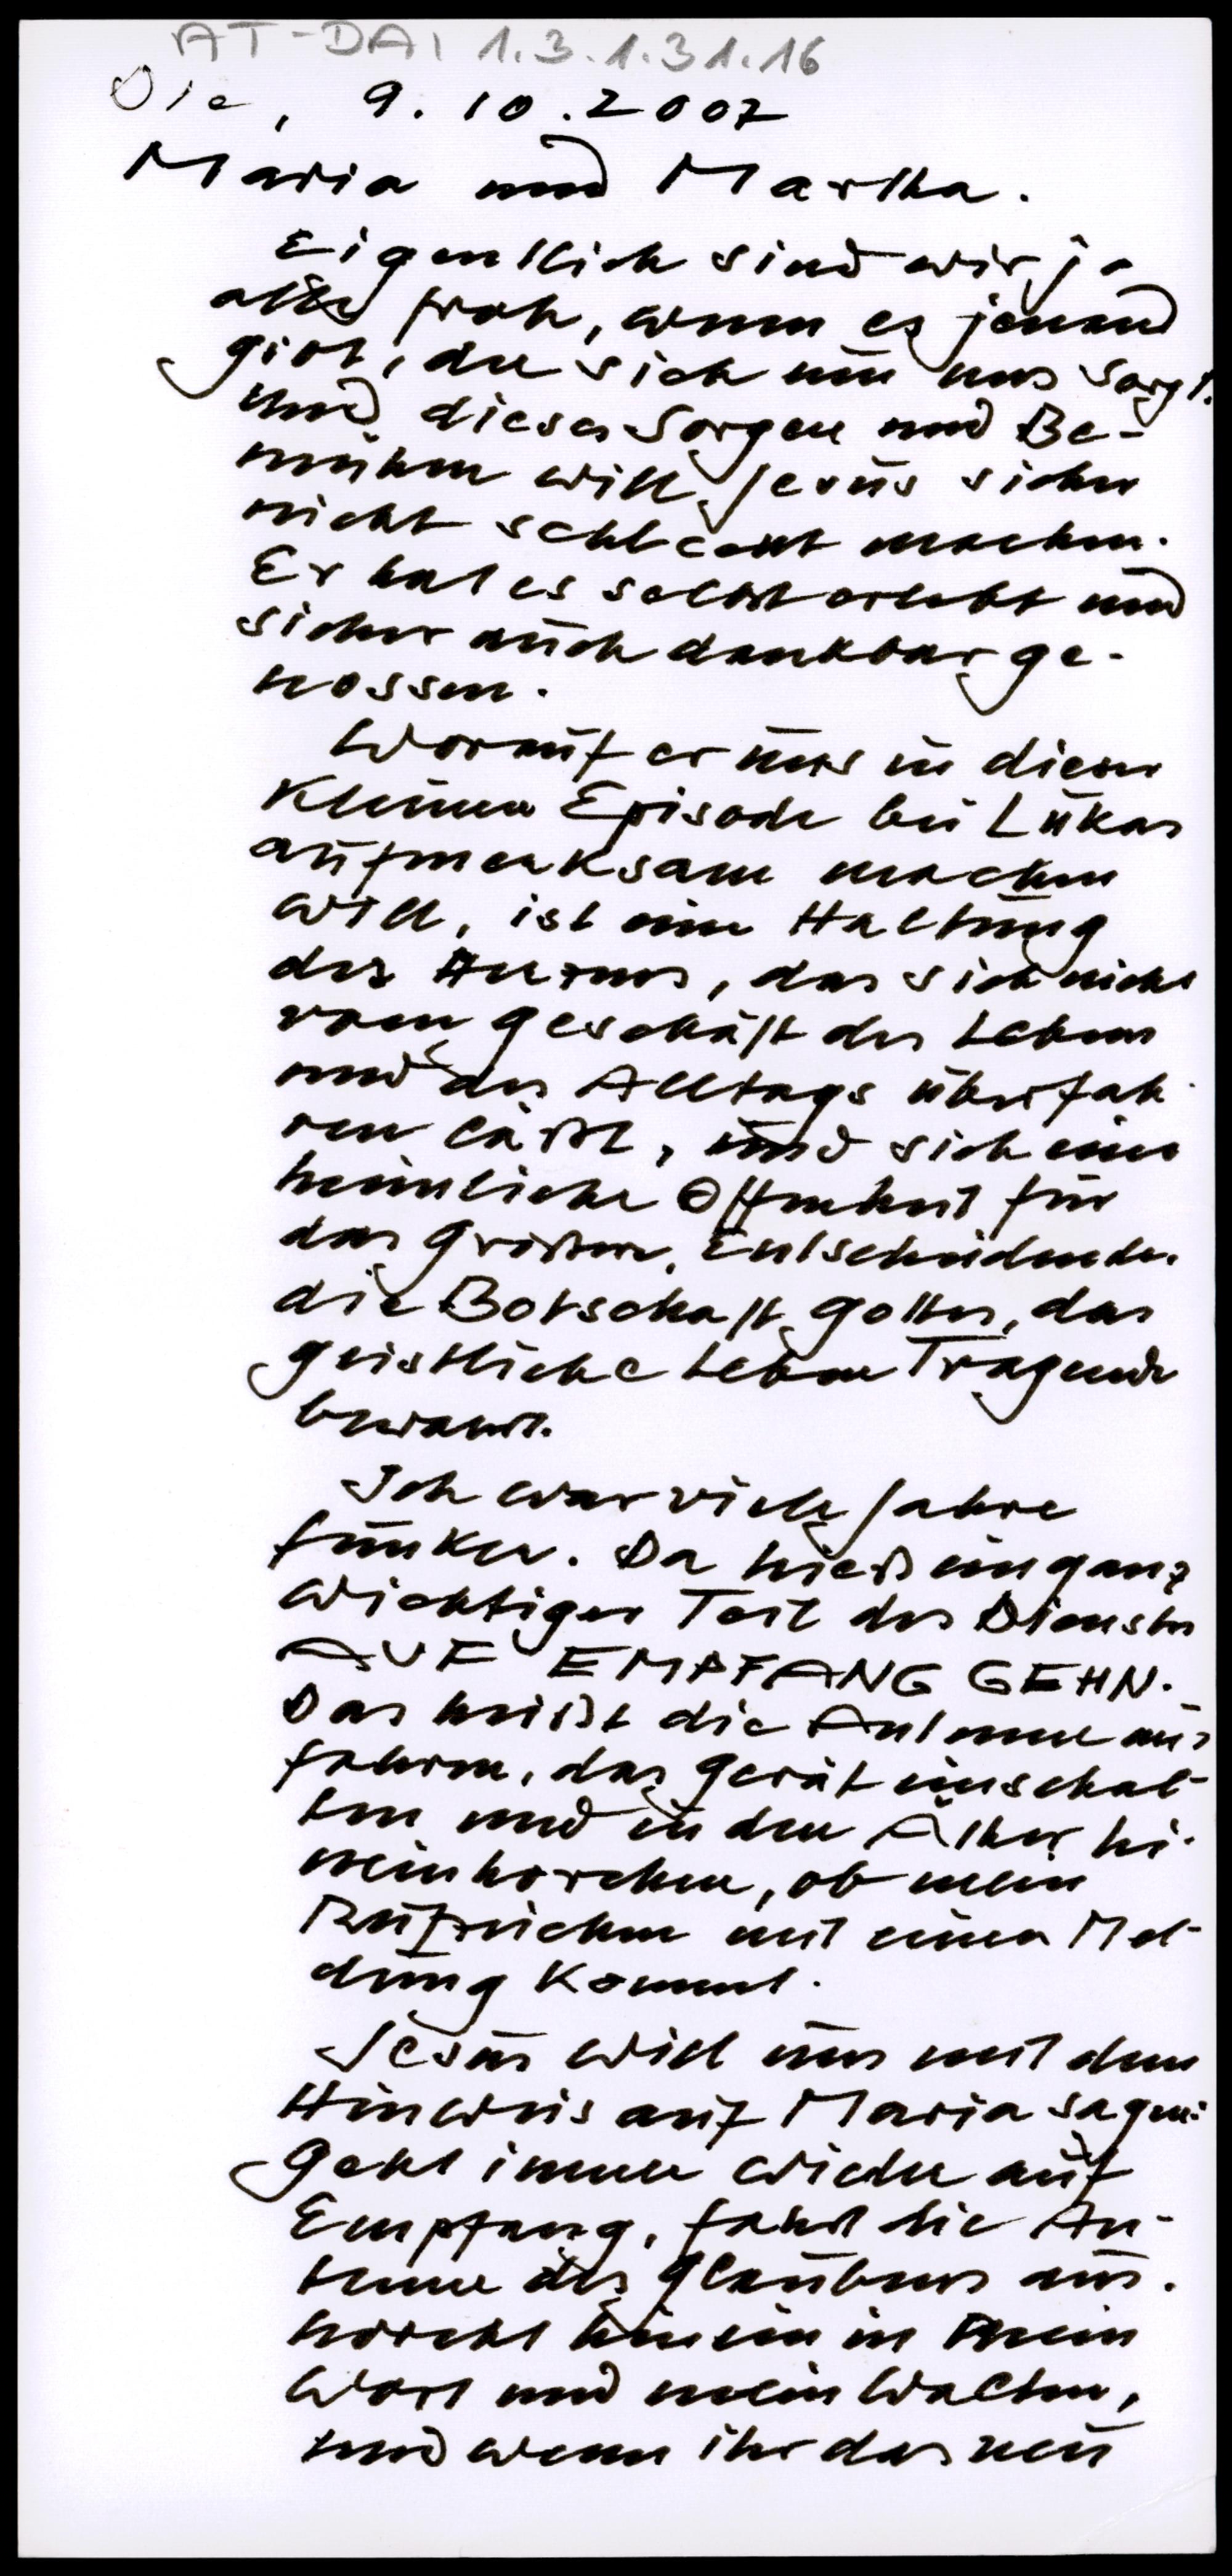 AT-DAI 1.3.1.31.16
Die, 9.10.2007
Maria und Martha.
Eigentlich sind wir ja
alle froh, wenn es jemand
gibt, der sich um uns sorgt.
Und dieses Sorgen und Be-
mühen will Jesus sicher
nicht schlecht machen.
Er hat es selbst erlebt und
sicher auch dankbar ge-
nossen.
Worauf er uns in dieser
kleinen Episode bei Lukas
aufmerksam machen
will, ist eine Haltung
des Herzens, das sich nicht
vom Geschäft des Lebens
und des Alltags überfah-
ren läßt, und sich eine
heimliche Offenheit für
das Größere, Entscheidende,
die Botschaft Gottes, das
geistliche Leben Tragende
bewahrt.
Ich war viele Jahre
Funker. Da hieß ein ganz
wichtiger Teil des Dienstes
AUF EMPFANG GEHN.
Das heißt die Antenne aus
fahren, das Gerät einschal-
ten und in den Äther hi-
neinhorchen, ob mein
Rufzeichen mit einer Mel-
dung kommt.
Jesus will uns mit dem
Hinweis auf Maria sagen:
Geht immer wieder auf
Empfang, fahrt die An-
tenne des Glaubens aus.
horcht hinein in mein
Wort und mein Walten,
und wenn ihr das neu